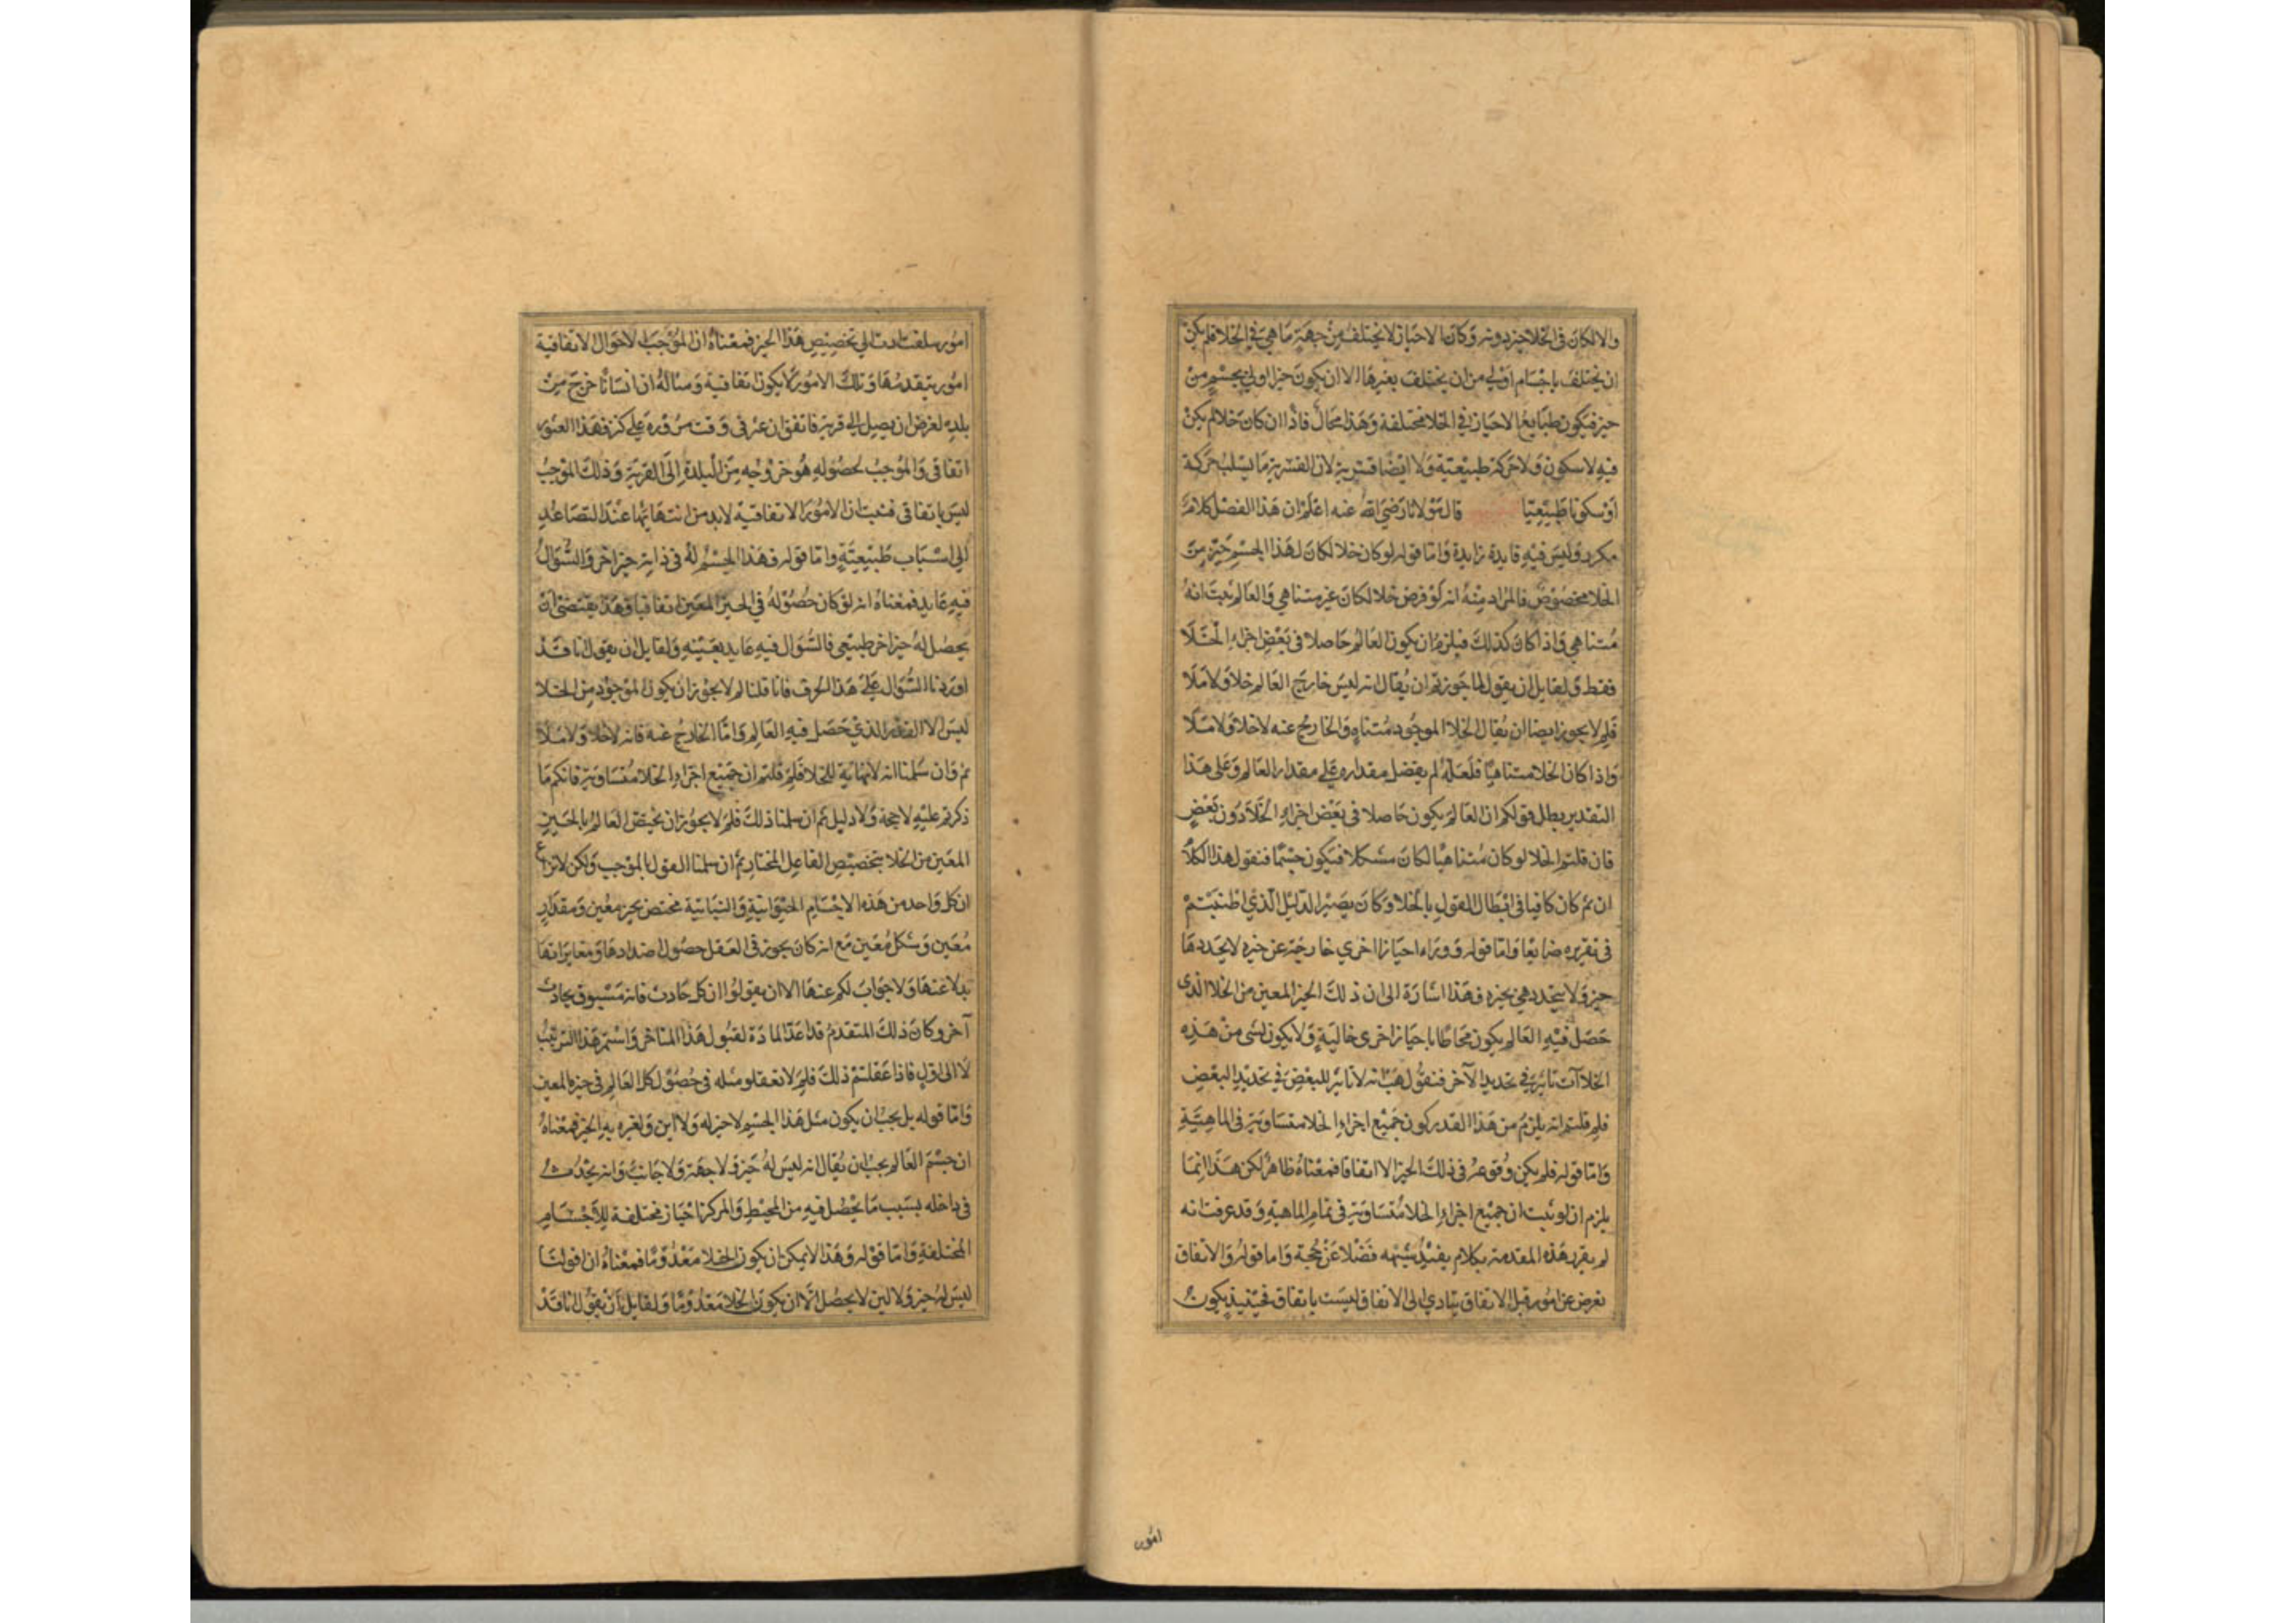 والا لكان فى الخلا حيز دونه وكان الاحياز لا يختلف من جهة ما هي في الخلا فلم يكن
ان يختلف باجسام اولي من ان يختلف بغيرها الا ان يكون حيزا اولي بجسم من
حيز فيكون طبايع الاحياز في الخلا مختلفة وهذا محال فاذا ان كان خلا لم يكن
فيه لا سكون ولا حركة طبيعتية ولا ايضا قسرية لان القسرية ما يسلب حركة
او سكونا طبيعيا قال مولانا رضي الله عنه اعلم ان هذا الفصل كلام
مكرر وليس فيه فايدة زايدة واما قوله لو كان خلا لكان لهذا الجسم حيز من
الخلا مخصوص فالمراد منه انه لو فرض خلا لكان غير متناهي والعالم ثبت انه
متناهي واذا كان كذلك فيلزم ان يكون العالم حاصلا فى بعض اجزاء الخلا
فقط ولقايل ان يقول لما جوزتم ان يقال انه ليس خارج العالم خلا ولا ملا
فلم لا يجوز ايضا ان يقال الخلا الموجود متناه والخارج عنه لا خلا ولا ملا
واذا كان الخلا متناهيا فلعله لم يفضل مقداره علي مقدار العالم وعلى هذا
التقدير بطل قولكم ان العالم يكون حاصلا فى بعض اجزاء الخلا دون بعض
فان قلتم الخلا لو كان متناهيا لكان مشكلا فيكون جسما فنقول هذا الكلام
ان تم كان كافيا فى ابطال القول بالخلا وكان يصير الدليل الذي اطنبتم
فى تقريره ضايعا واما قوله ووراء احياز اخري خارجة عن حيزه لا يحددها
حيز ولا يتحدد هي بحيزه فهذا اشارة الى ان ذلك الحيز المعين من الخلا الذى
حصل فيه العالم يكون محاطا باحياز اخرى خالية ولا يكون لشى من هذه
الخلاآت تاثير في تحديد الآخر فنقول هب انه لا تاثير للبعض في تحديد البعض
فلم قلتم انه يلزم من هذا القدر كون جميع اجزاء الخلا متساوية فى الماهية
واما قوله فلم يكن وقوعه فى ذلك الحيز الا اتفاقا فمعناه ظاهر لكن هذا انما
يلزم ان لو ثبت ان جميع اجزاء الخلا متساوية فى تمام الماهية وقد عرفت انه
لم يقرر هذه المقدمة بكلام يفيد شبهه فضلا عن حجة واما قوله والاتفاق
يعرض عن امور قبل الاتفاق يتادي الى الاتفاق ليست باتفاق فحينئذ يكون
امور
امور سلفت ادت الي تخصيص هذا الحيز فمعناه ان الموجب للاحوال الاتفاقية
امور يتقدمها وتلك الامور لا يكون اتفاقية ومثاله ان انسانا خرج من
بلده لغرض ان يصل الي قرية فاتفق ان عثر فى وقت مروره علي كنز فهذا العثور
اتفاقى والموجب لحصوله هو خروجه من البلدة الى القرية وذلك الموجب
ليس باتفاقى فثبت ان الامور الاتفاقية لا بد من انتهايها عند التصاعد
الي اسباب طبيعية واما قوله فهذا الجسم له فى ذاته حيز آخر والسؤال
فيه عايد فمعناه انه لو كان حصوله في الحيز المعين اتفاقيا وهذا يقتضى ان
يحصل له حيز اخر طبيعى فالسؤال فيه عايد بعينه ولقايل ان يقول انا قد
اوردنا السؤال علي هذا الحرف فانا قلنا لم لا يجوز ان يكون الموجود من الخلا
ليس الا القدر الذي حصل فيه العالم واما الخارج عنه فانه لا خلا ولا ملا
ثم وان سلمنا انه لا نهاية للخلا فلم قلتم ان جميع اجزاء الخلا متساوية فانكم ما
ذكرتم عليه لا حجة ولا دليل ثم ان سلمنا ذلك فلم لا يجوز ان يختص العالم بالحيز
المعين من الخلا بتخصيص الفاعل المختار ثم ان سلمنا القول بالموجب ولكن لا نزاع
ان كل واحد من هذه الاجسام الحيوانية والنباتية مختص بحيز معين ومقدار
معين وشكل معين مع انه كان يجوز فى العقل حصول اضدادها ومغايراتها
بدلا عنها ولا جواب لكم عنها الا ان يقولوا ان كل حادث فانه مسبوق بحادث
آخر وكان ذلك المتقدم قد اعد المادة لقبول هذا المتاخر واستمر هذا الترتيب
لا الى اول فاذا عقلتم ذلك فلم لا تعقلو مثله فى حصول كل العالم فى حيزه المعين
واما قوله بل يجب ان يكون مثل هذا الجسم لا حيز له ولا اين ولغيره به الحيز فمعناه
ان جسم العالم يجب ان يقال انه ليس له حيز ولا جهة ولا جانب وانه يحدث
فى داخله بسبب ما يحصل فيه من المحيط والمركز احياز مختلفة للاجسام
المختلفة واما قوله وهذا لا يمكن ان يكون الخلا معدوما فمعناه ان قولنا
ليس له حيز ولا اين لا يحصل الا ان يكون الخلا معدوما ولقايل ان يقول انا قد